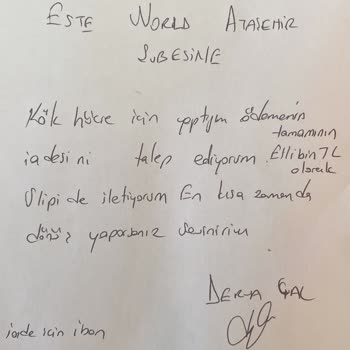 ESTE WORLD ATAŞEHİR
ŞUBESİNE
Kök hücre için yaptığım ödemenin
tamamının
iadesini talep ediyorum. Ellibin TL
olarak
Slipi de iletiyorum En kısa zamanda
dönüş yaparsanız sevinirim
DERYA
iade için iban